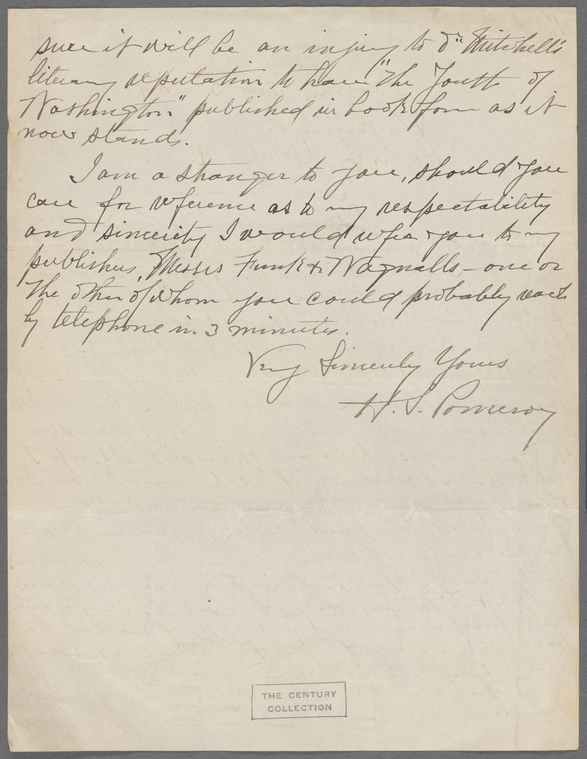 sure it will be an injury to Dr Mitchell's
literary reputation to have "The Youth of
Washington" published in book form as it
now stands.
I am a stranger to you, should you
care for reference as to my respectability
and sincerity I would refer you to my
publishers, Messrs Funk & Wagnalls - one or
the other of whom you could probably reach
by telephone in 3 minutes.
Very Sincerely Yours
H. S. Pomeroy
THE CENTURY
COLLECTION